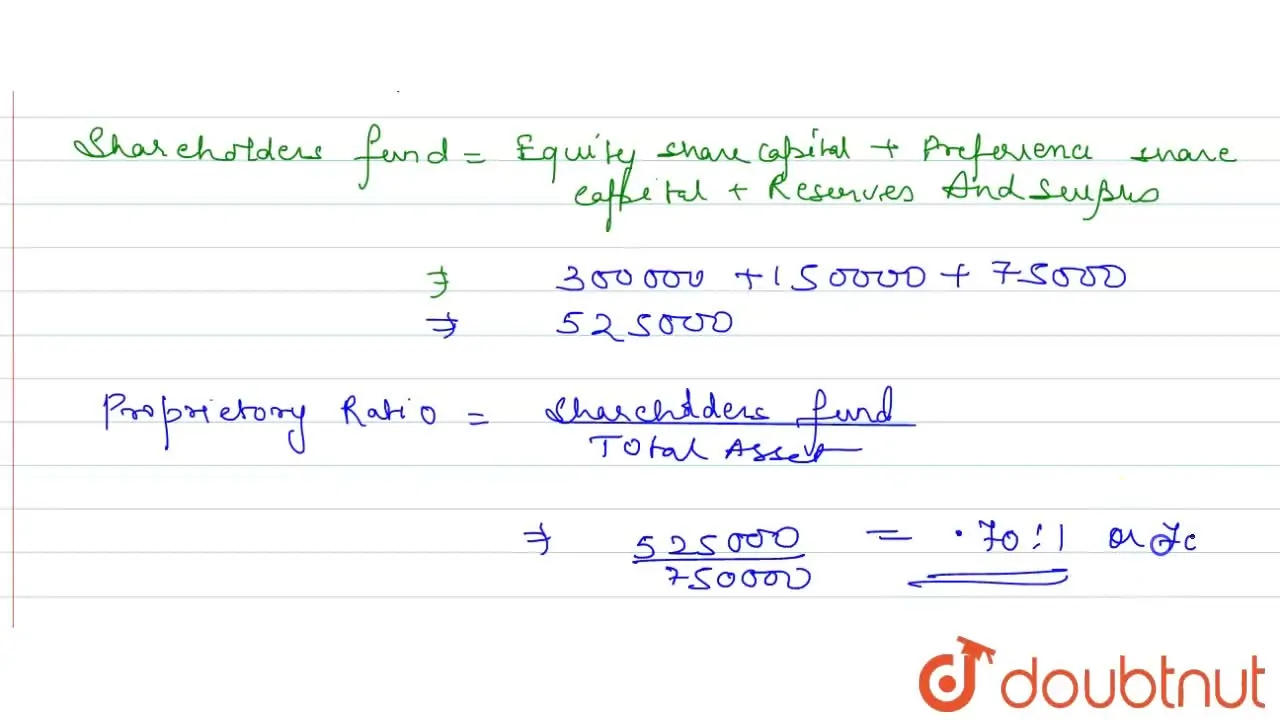 Shareholders fund = Equity share capital + Preference share
capital + Reserves And Surplus
⇒ 300000 + 150000 + 75000
⇒ 525000
Proprietory Ratio = Shareholders fund
Total Asset
⇒ 525000 = .70:1 or 70
750000
doubtnut